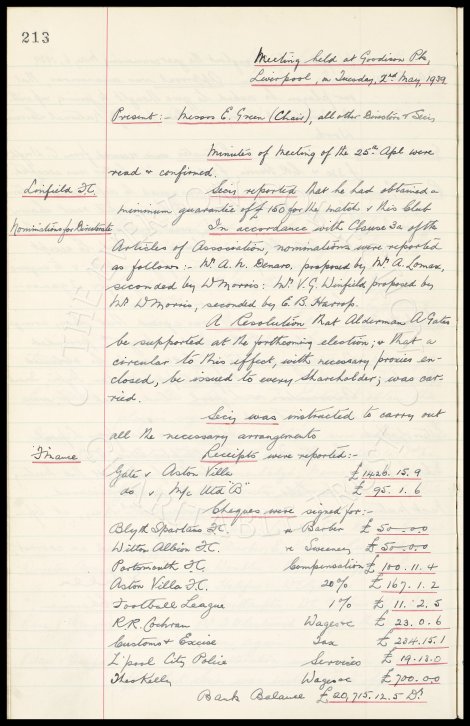 213
Meeting held at Goodison Pk,
Liverpool, on Tuesday, 2nd May, 1939
Present:- Messrs E. Green (Chair), all other Directors & Secy
Minutes of Meeting of the 25th Apl were
read & confirmed.
Linfield F.C.
Secy reported that he had obtained a
minimum guarantee of £150 for the match v this Club
Nomination for Directorate
In accordance with Clause 3a of the
Articles of Association, nominations were reported
as follows:- Mr A. N. Denaro, proposed by Mr A. Lomax,
seconded by W Morris: Mr V. G. Wenfield proposed by
Mr W Morris, seconded by E. B. Harrop.
A Resolution that Alderman A Gates
be supported at the forthcoming election; & that a
circular to this effect, with necessary proxies en-
closed, be issued to every Shareholder; was car-
ried.
Secy was instructed to carry out
all the necessary arrangements
Finance
Receipts were reported:-
Gate v Aston Villa £1426.15.9
do v M/c Utd "B" £ 95.1.6
Cheques were signed for:-
Blyth Spartans F.C. re Barber £ 50.0.0
Witton Albion F.C. re Sweeney £ 50.0.0
Portsmouth F.C. Compensation £ 100.11.4
Aston Villa F.C. 20% £ 167.1.2
Football League 1% £ 11.2.5
R.R. Cochran Wages &c £ 23.0.6
Customs & Excise Tax £ 234.15.1
L'pool City Police Services £ 19.13.0
Theo Kelly Wages &c £700.0.0
Bank Balance £20,715.12.5 Dr